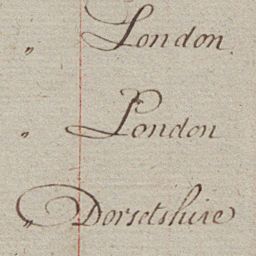 „ London.
„ London
„ Dorsetshire